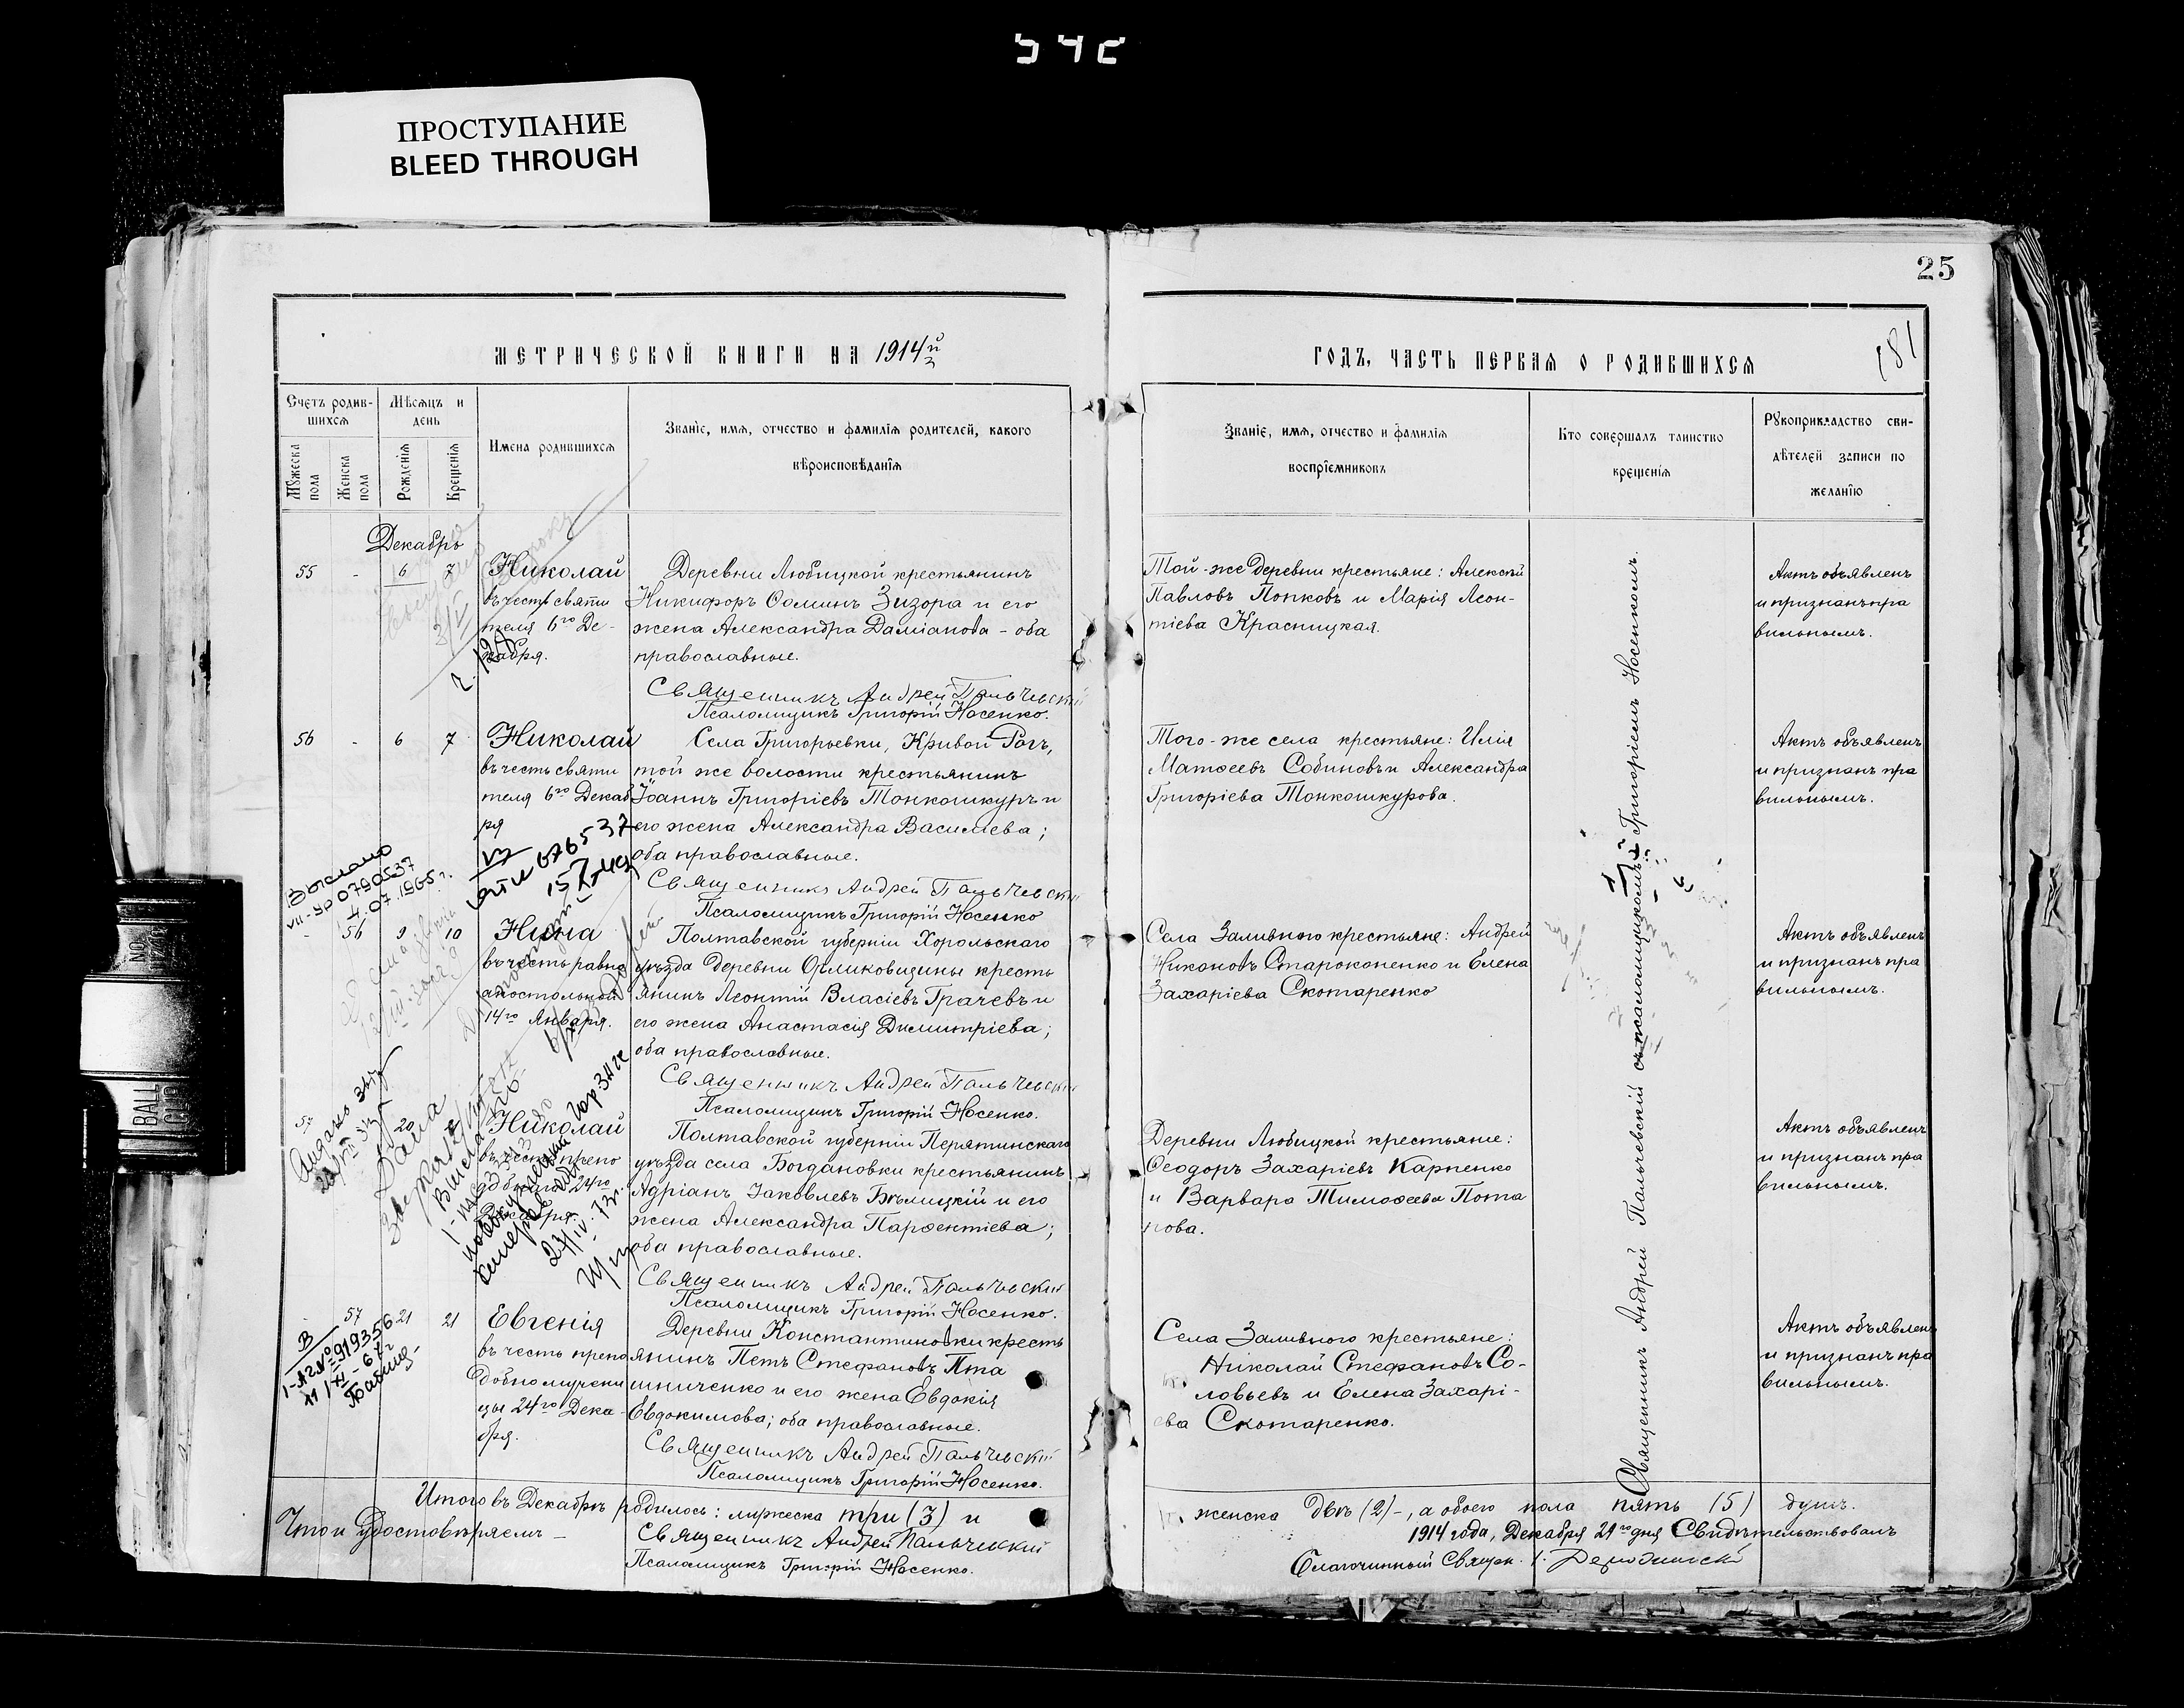 ПРОСТУПАНИЕ
BLEED THROUGH
25
181
МЕТРИЧЕСКОЙ КНИГИ НА 1914й
ГОДЪ, ЧАСТЬ ПЕРВАЯ О РОДИВШИХСЯ
Счетъ родив-
шихся
Мужеска пола
Женска пола
Мѣсяцъ и
день
Рожденія
Крещенія
Имена родившихся
Званіе, имя, отчество и фамилія родителей, какого
вѣроисповѣданія
Званіе, имя, отчество и фамилія
воспріемниковъ
Кто совершалъ таинство
крещенія
Рукоприкладство сви-
дѣтелей записи по
желанію
Декабрь
55 - 6 7
Николай
въ честь святи
теля 6го Де-
кабря.
Деревни Любицкой крестьянинъ
Никифоръ Ѳоминъ Зизора и его
жена Александра Даміанова - оба
православные.
Священникъ Андрей Пальчевскій
Псаломщикъ Григорій Носенко.
Той-же деревни крестьяне: Алексѣй
Павловъ Попковъ и Марія Леон-
тіева Красницкая.
Актъ объявленъ
и признанъ пра
вильнымъ.
56 - 6 7
Николай
въ честь святи
теля 6го Декаб
ря
Села Григорьевки, Кривой Рогъ,
той же волости крестьянинъ
Іоаннъ Григоріевъ Тонкошкуръ и
его жена Александра Василіева;
оба православные.
Священникъ Андрей Пальчевскій
Псаломщикъ Григорій Носенко
Того-же села крестьяне: Илія
Матѳеевъ Собиновъ и Александра
Григоріева Тонкошкурова.
Актъ объявленъ
и признанъ пра
вильнымъ.
0790537
4.07.1965г.
- 56 9 10
Нина
въ честь равно
апостольной
14го Января.
Полтавской губерніи Хорольскаго
уѣзда деревни Орликовщины кресть
янинъ Леонтій Власіевъ Грачевъ и
его жена Анастасія Димитріева;
оба православные.
Священникъ Андрей Пальчевскій
Псаломщикъ Григорій Носенко.
Села Заливного крестьяне: Андрей
Никоновъ Староконенко и Елена
Захаріева Скотаренко
Актъ объявленъ
и признанъ пра
вильнымъ.
57
20
Николай
въ честь препо
добнаго 24го
Декабря.
Полтавской губерніи Пирятинскаго
уѣзда села Богдановки крестьянинъ
Адріанъ Іаковлевъ Бѣлицкій и его
жена Александра Парѳентіева;
оба православные.
Священникъ Андрей Пальчевскій
Псаломщикъ Григорій Носенко.
Деревни Любицкой крестьяне:
Ѳеодоръ Захаріевъ Карпенко
и Варвара Тимоѳеева Пота
пова.
Актъ объявленъ
и признанъ пра
вильнымъ.
57 21 21
Евгенія
въ честь препо
добномучени
цы 24го Дека-
бря.
Деревни Константиновки кресть
янинъ Петъ Стефановъ Пта
шниченко и его жена Евдокія
Евдокимова; оба православные.
Священникъ Андрей Пальчевскій
Псаломщикъ Григорій Носенко.
Села Заливного крестьяне:
Николай Стефановъ Со-
ловьевъ и Елена Захарі-
ева Скотаренко.
Актъ объявленъ
и признанъ пра
вильнымъ.
Священникъ Андрей Пальчевскій съ псаломщикомъ Григоріемъ Носенкомъ.
Итого въ Декабрѣ родилось: мужеска три (3) и
женска двѣ (2) -, а обоего пола пять (5) душъ.
Что и удостовѣряемъ -
Священникъ Андрей Пальчевскій
Псаломщикъ Григорій Носенко.
1914 года, Декабря 29го дня Свидѣтельствовалъ
Благочинный Священ.
BALL